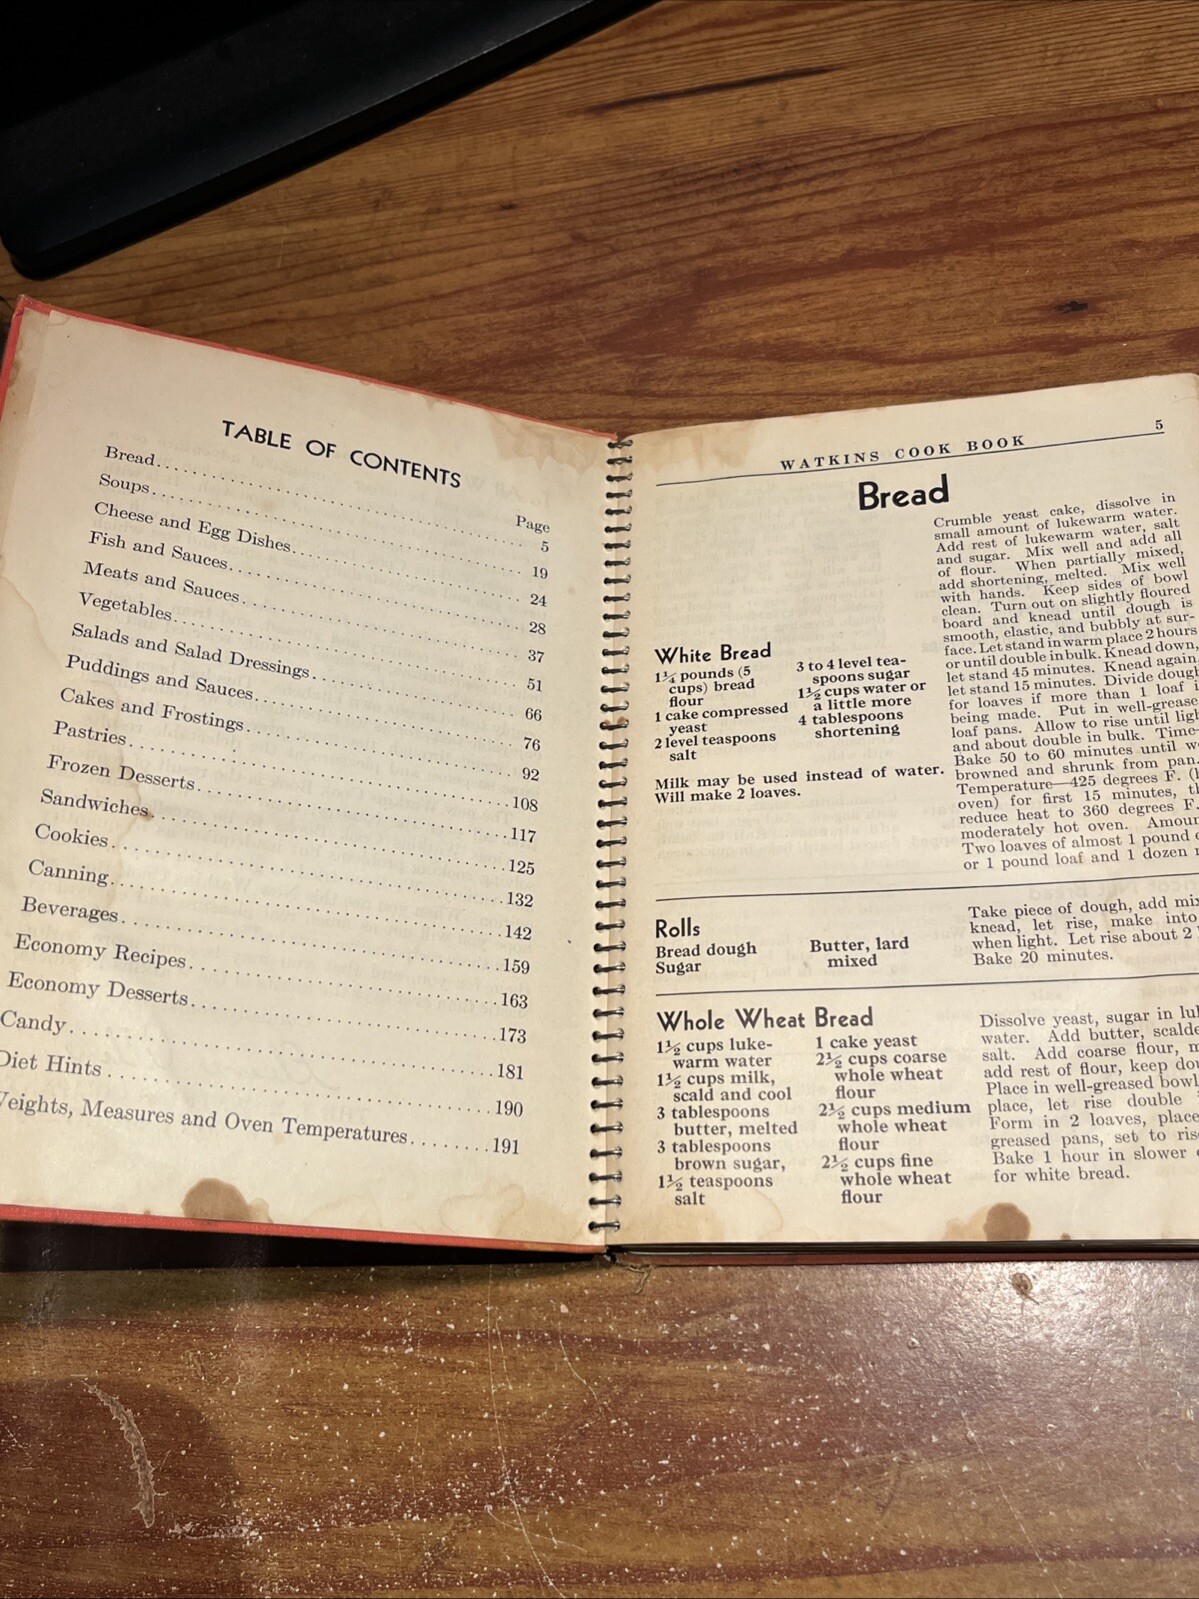 TABLE OF CONTENTS
Page
Bread.......... 5
Soups.......... 19
Cheese and Egg Dishes.......... 24
Fish and Sauces.......... 28
Meats and Sauces.......... 37
Vegetables.......... 51
Salads and Salad Dressings.......... 66
Puddings and Sauces.......... 76
Cakes and Frostings.......... 92
Pastries.......... 108
Frozen Desserts.......... 117
Sandwiches.......... 125
Cookies.......... 132
Canning.......... 142
Beverages.......... 159
Economy Recipes.......... 163
Economy Desserts.......... 173
Candy.......... 181
Diet Hints.......... 190
Weights, Measures and Oven Temperatures.......191
WATKINS COOK BOOK 5
Bread
White Bread
1¼ pounds (5
cups) bread
flour
1 cake compressed
yeast
2 level teaspoons
salt
3 to 4 level tea-
spoons sugar
1½ cups water or
a little more
4 tablespoons
shortening
Milk may be used instead of water.
Will make 2 loaves.
Crumble yeast cake, dissolve in
small amount of lukewarm water.
Add rest of lukewarm water, salt
and sugar. Mix well and add all
of flour. When partially mixed,
add shortening, melted. Mix well
with hands. Keep sides of bowl
clean. Turn out on slightly floured
board and knead until dough is
smooth, elastic, and bubbly at sur-
face. Let stand in warm place 2 hours
or until double in bulk. Knead down,
let stand 45 minutes. Knead again,
let stand 15 minutes. Divide dough
for loaves if more than 1 loaf
being made. Put in well-grease
loaf pans. Allow to rise until
and about double in bulk. Time—
Bake 50 to 60 minutes until
browned and shrunk from pan.
Temperature—425 degrees F.
oven) for first 15 minutes,
reduce heat to 360 degrees F.
moderately hot oven. Amoun
Two loaves of almost 1 pound
or 1 pound loaf and 1 dozen
Rolls
Bread dough
Sugar
Butter, lard
mixed
Take piece of dough, add
knead, let rise, make into
when light. Let rise about 2
Bake 20 minutes.
Whole Wheat Bread
1½ cups luke-
warm water
1½ cups milk,
scald and cool
3 tablespoons
butter, melted
3 tablespoons
brown sugar,
1½ teaspoons
salt
1 cake yeast
2½ cups coarse
whole wheat
flour
2½ cups medium
whole wheat
flour
2½ cups fine
whole wheat
flour
Dissolve yeast, sugar in
water. Add butter, scalde
salt. Add coarse flour,
add rest of flour, keep
Place in well-greased bowl
place, let rise double
Form in 2 loaves, place
greased pans, set to
Bake 1 hour in slower
for white bread.